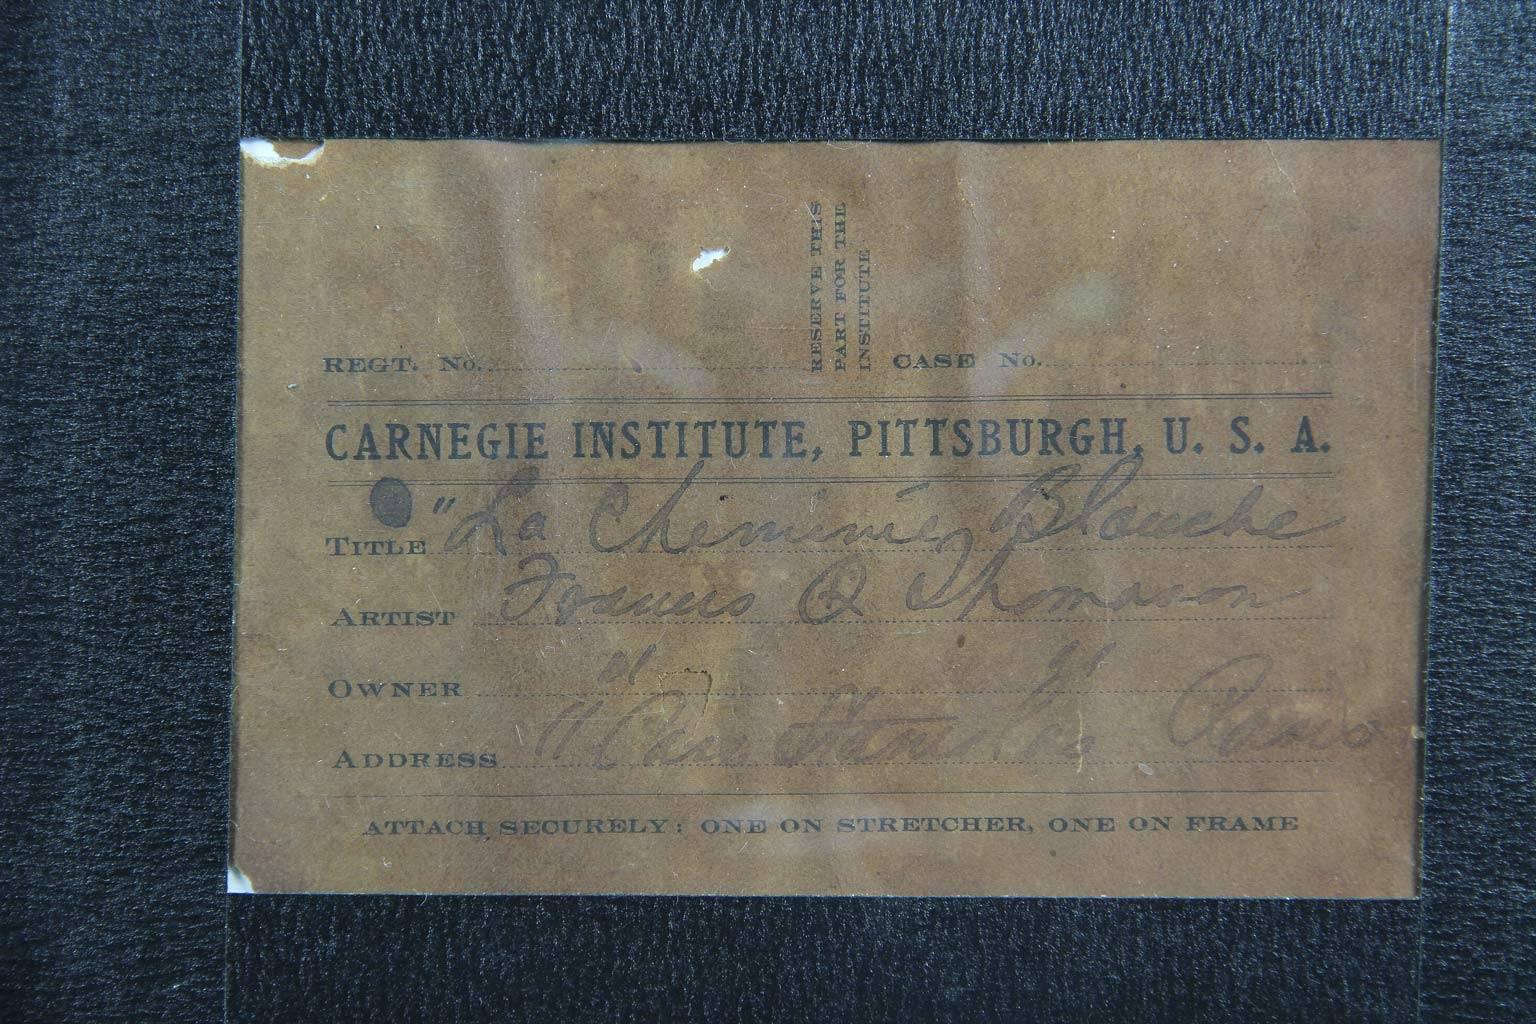 RESERVE THIS
PART FOR THE
INSTITUTE
REGT. No.
CASE No.
CARNEGIE INSTITUTE, PITTSBURGH, U. S. A.
TITLE "La Cheminie Blanche
ARTIST Francis Q Thomason
OWNER " "
ADDRESS " Care Paris
ATTACH SECURELY: ONE ON STRETCHER, ONE ON FRAME